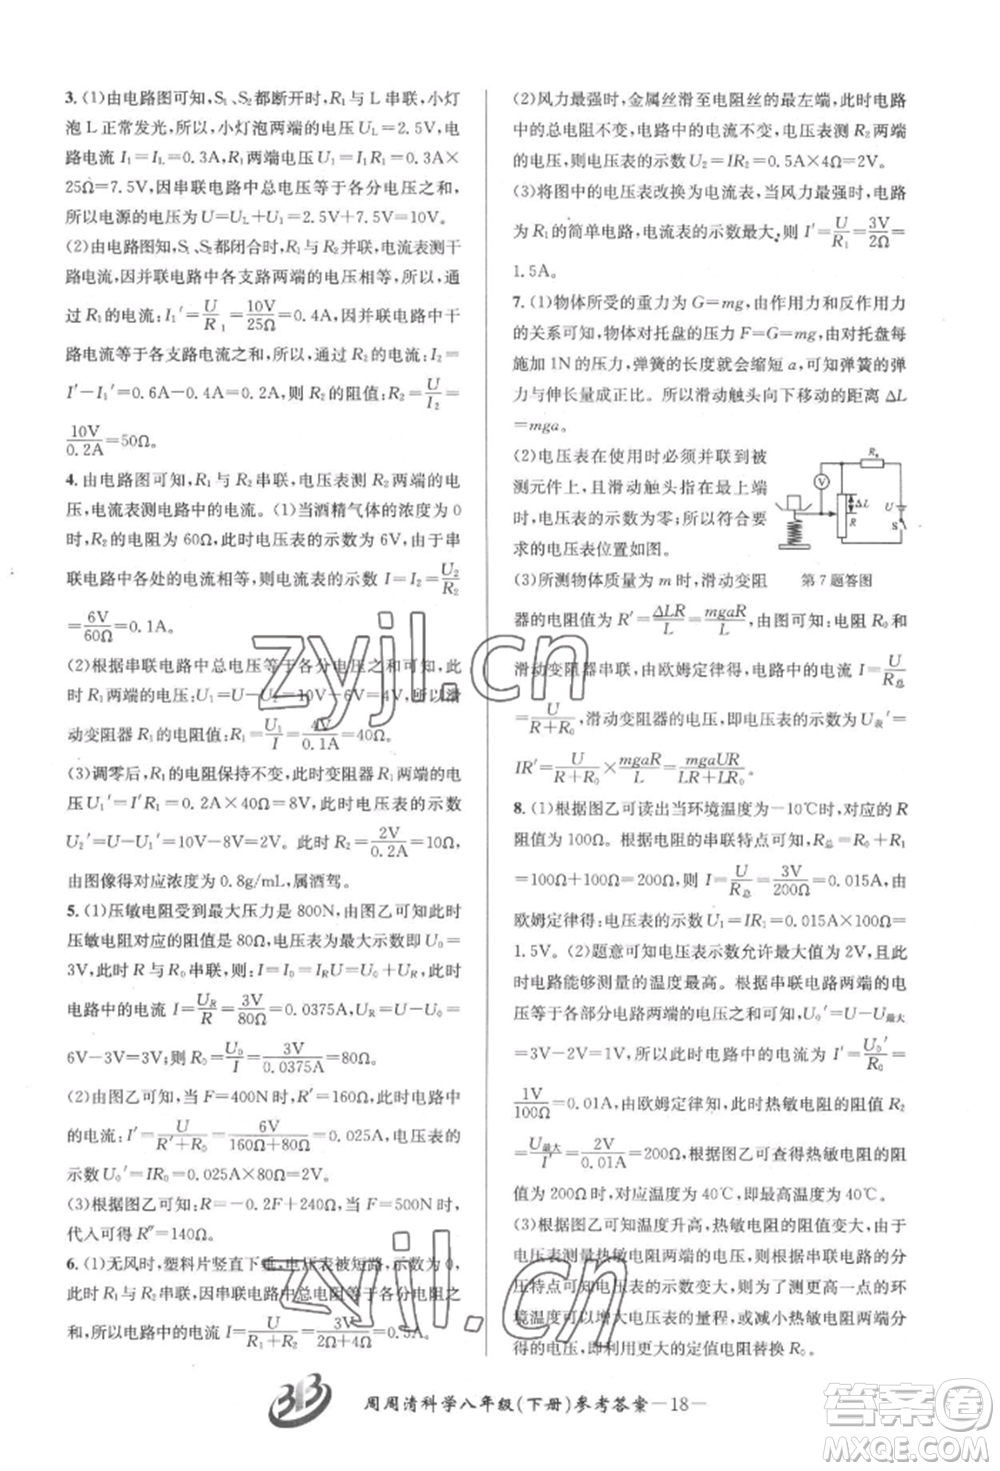 3. (1)由电路图可知,S₁、S₂都断开时,R₁与L串联,小灯
泡L正常发光,所以,小灯泡两端的电压U_L=2.5V,电
路电流I₁=I=0.3A,R₁两端电压U₁=I₁R₁=0.3A×
25Ω=7.5V,因串联电路中总电压等于各分电压之和,
所以电源的电压U=U_L+U₁=2.5V+7.5V=10V。
(2)由电路图知,S₁、S₂都闭合时,R₁与R₂并联,电流表测干
路电流,因并联电路中各支路两端的电压相等,所以,通
过R₁的电流:I₁′=U/R₁=10V/25Ω=0.4A,因并联电路中干
路电流等于各支路电流之和,所以R₂的电流:I₂=
I′−I₁′=0.6A−0.4A=0.2A,则R₂的阻值:R₂=U/I₂=
10V/0.2A=50Ω。
4. 由电路图可知,R₁与R₂串联,电压表测R₂两端的电
压,电流表测电路中的电流。(1)当酒精气体的浓度为0
时,R₂的电阻为60Ω,此时电压表的示数为6V,由于串
联电路中各处的电流相等,则电流表的示数I=U₂/R₂
=6V/60Ω=0.1A。
(2)根据串联电路中总电压等于各分电压之和可知,此
时R₁两端的电压:U₁=U−U₂=10V−6V=4V,所以滑
动变阻器R₁的电阻值:R₁=U₁/I=4V/0.1A=40Ω。
(3)调零后,R₁的电阻保持不变,此时变阻器R₁两端的电
压U₁′=I′R₁=0.2A×40Ω=8V,此时电压表的示数
U₂′=U−U₁′=10V−8V=2V。此时R₂=2V/0.2A=10Ω,
由图像得对应浓度为0.8g/mL,属酒驾。
5. (1)压敏电阻受到最大压力是800N,由图乙可知此时
压敏电阻对应的阻值是80Ω,电压表的最大示数即U₀=
3V,此时R与R₀串联,则:I₀=I_R U=U₀+U_R,此时
电路中的电流I=U_R/R=3V/80Ω=0.0375A,U_R=U−U₀=
6V−3V=3V;则R₀=U₀/I=3V/0.0375A=80Ω。
(2)由图乙可知,当F=400N时,R′=160Ω,此时电路中
的电流:I′=U/(R′+R₀)=6V/(160Ω+80Ω)=0.025A,电压表的
示数U₀′=IR₀=0.025A×80Ω=2V。
(3)根据图乙可知:R=−0.2F+240Ω,当F=500N时,
代入可得R″=140Ω。
6. (1)无风时,塑料片竖直下垂,电压表被短路,示数为零。
此时R₁与R₂串联,因串联电路中总电阻等于各分电阻之
和,所以电路中的电流I=U/(R₁+R₂)=3V/(2Ω+4Ω)=0.5A。
(2)风力最强时,金属丝滑至电阻丝的最左端,此时电路中
的总电阻不变,电路中的电流不变,电压表测R₂两端
的电压,电压表的示数U₂=IR₂=0.5A×4Ω=2V。
(3)将图中的电压表改换为电流表,当风力最强时,电路
为R₁的简单电路,电流表的示数最大,则I′=U/R₁=3V/2Ω=
1.5A。
7. (1)物体所受的重力为G=mg,由作用力和反作用力
的关系可知,物体对托盘的压力F=G=mg,由对托盘每
施加1N的压力,弹簧的长度就会缩短a,可知弹簧的弹
力与伸长量成正比。所以滑动触头向下移动的距离ΔL
=mga。
(2)电压表在使用时必须并联到被
测元件上,且滑动触头指在最上端
时,电压表的示数为零;所以按要求
的电压表位置如图。
R₀
V
ΔL
R
U
S
第7题答图
(3)所测物体质量为m时,滑动变阻
器的电阻值为R′=ΔLR/L=mgaR/L,由图可知,电阻R₀和
滑动变阻器串联,由欧姆定律得,电路中的电流I=U/R总
=U/(R+R₀),滑动变阻器的电压,即电压表的示数U表′=
IR′=U/(R+R₀)×mgaR/L=mgaUR/(LR+LR₀)。
8. (1)根据图乙可读出当环境温度为−10℃时,对应的R
阻值为100Ω。根据电阻的串联特点可知,R总=R₀+R₁
=100Ω+100Ω=200Ω,电流I=U/R总=3V/200Ω=0.015A,由
欧姆定律得:电压表的示数U₁=IR₁=0.015A×100Ω=
1.5V。(2)题意可知电压表示数允许最大值为2V,此
时电路能够测量的温度最高。根据串联电路两端的电
压等于各部分电路两端的电压之和可知,U₀′=U−U最大
=3V−2V=1V,所以此时电路中的电流为I′=U₀′/R₀=
1V/100Ω=0.01A,由欧姆定律知,此时热敏电阻的阻值R₂
=U最大/I′=2V/0.01A=200Ω,根据图乙可查得热敏电阻的阻
值为200Ω时,对应温度为40℃,即最高温度为40℃。
(3)根据图乙可知温度升高,热敏电阻的阻值变大,
由图甲可知热敏电阻两端的电压,则根据串联电路的分
压特点可知电压表的示数变大,则为了测更高一点的环
境温度可以增大电压表的量程,或减小热敏电阻两端分
得的电压,即用更大的阻值的电阻来替换R₀。
周周清科学八年级(下册)参考答案—18—
zyjl.cn
zyjl.cn
答案圈
MXQE.COM